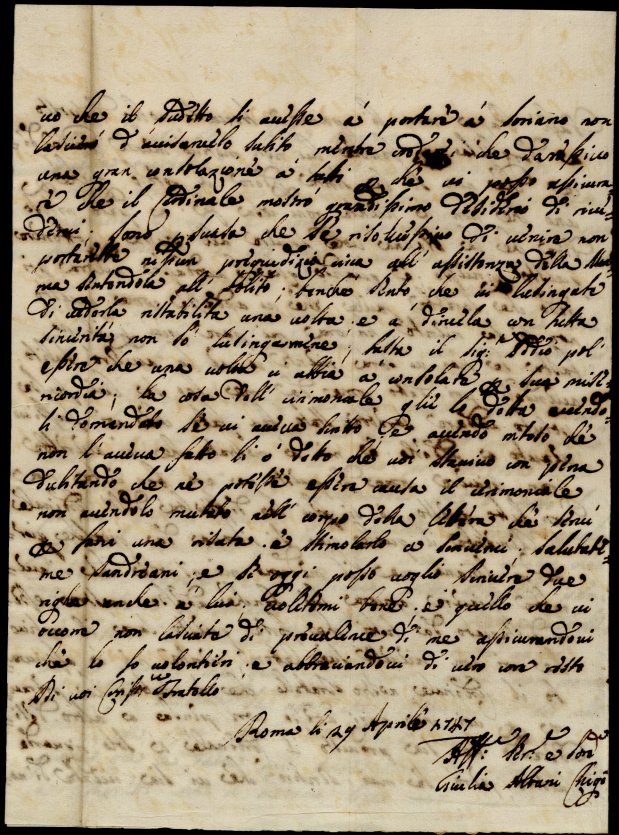 vo che il sudetto si avesse à portare à Soriano non
lascierò d'avvisarvelo subito mentre che dareste
una gran consolazione à tutti e che vi posso assicura
re che il Cardinale mostrò grandissimo desiderio di rive
dervi. sono suasa che se risolvessivo di venire non
portareste nessun pregiudizio circa all' assistenza della
ma sentendola al solito; benche sento che vi lusingate
di vederla ristabilita una volta. e à dirvela con tutta
sincerità non sò lusingarmene; basta il Sig.re Iddio può
essere che una volta ci abbia à consolare sua mise=
ricordia; la cosa dell' cirimoniale glie lò detta avendo=
li domandato se vi aveva scritto e avendo inteso che
non l'aveva fatto li ò detto che voi stavivo con pena
dubitando che ne potesse essere causa il cerimoniale
non avendolo mutato nell' corpo della lettera che
fece una risata. è stimolarlo à scrivervi. Salutate=
me Sandreani, e se oggi posso voglio scrivere due
righe anche à lui. Voletemi bene. e quello che vi
occorre non lasciate di prevalervi di me assicurandovi
che lo fo volontieri. e abbracciandovi di vero core resto
Di voi Cariss.mo Fratello
Roma li 29 Aprile 1747
Aff.ma Ser.e e Sor.e
Giulia Albani Chigi